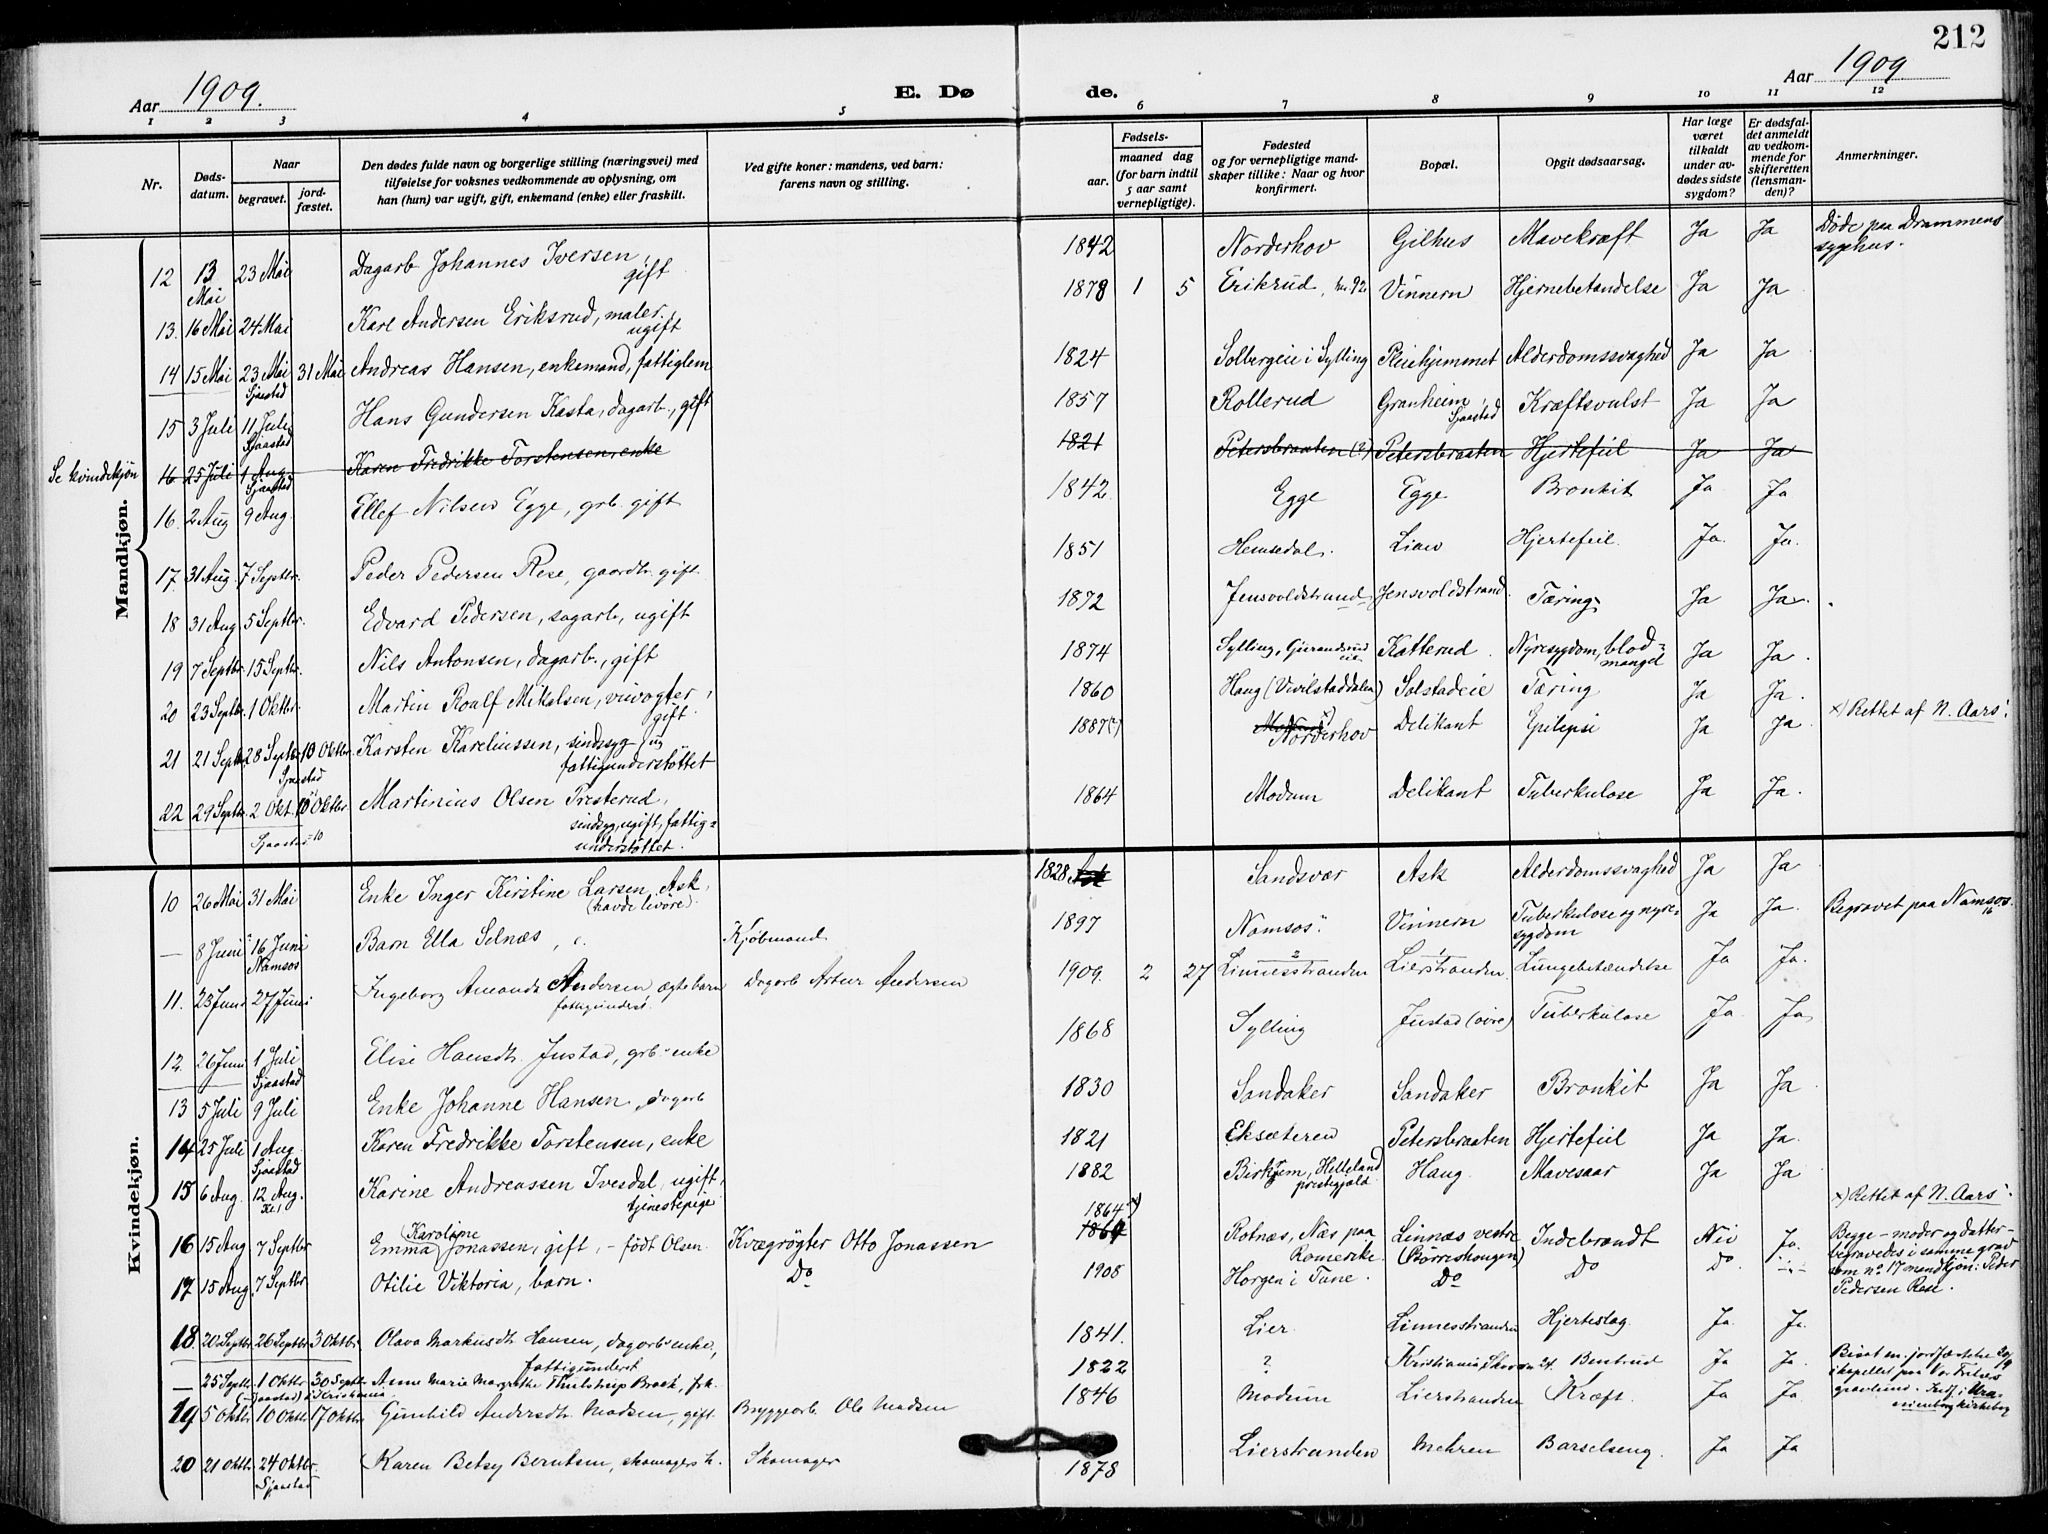 212
Aar 1909.
E. Dø
de.
Aar 1909
1 2 3 4 5 6 7 8 9 10 11 12
Nr.
Døds-
datum.
Naar
begravet.
jord-
fæstet.
Den dødes fulde navn og borgerlige stilling (næringsvei) med
tilføielse for voksnes vedkommende av oplysning, om
han (hun) var ugift, gift, enkemand (enke) eller fraskilt.
Ved gifte koner: mandens, ved barn:
farens navn og stilling.
Fødsels-
aar. maaned dag
(for barn indtil
5 aar samt
vernepligtige).
Fødested
og for vernepligtige mand-
skaper tillike: Naar og hvor
konfirmert.
Bopæl.
Opgit dødsaarsag.
Har læge
været
tilkaldt
under av-
dødes sidste
sygdom?
Er dødsfal-
det anmeldt
av vedkom-
mende for
skifteretten
(lensman-
den)?
Anmerkninger.
Mandkjøn.
12 13 Mai 23 Mai Dagarb Johannes Iversen, gift 1842 Norderhov Gilhus Mavekræft Ja Ja Døde paa Drammens sygehus.
13. 16 Mai 24 Mai Karl Andersen Eriksrud, maler. ugift 1878 1 5 Erikrud, Vinnern Hjernebetændelse Ja Ja
14 15 Mai 23 Mai Sjaastad 31 Mai Andreas Hansen, enkemand, fattiglem 1824 Solbergeie i Sylling Pleiehjemmet Alderdomssvaghed Ja Ja
15 3 Juli 11 Juli Sjaastad Hans Gundersen Kasta, dagarb., gift 1857 Rollerud Granheim, Sjaastad Kræftsvulst Ja Ja
Se kvindekjøn 16 25 Juli 1 Aug Sjaastad Karen Fredrikke Torstensen, enke 1821 Petersbraaten (?) Petersbraaten Hjertefeil Ja Ja
16. 2 Aug 9 Aug. Ellef Nilsen Egge, grb. gift 1842 Egge Egge Bronkit Ja Ja
17. 31 Aug. 7 Septbr. Peder Pedersen Rese, gaardbr. gift. 1851 Hemsedal. Lian Hjertefeil. Ja. Ja.
18 31 Aug 5 Septbr. Edvard Pedersen, sagarb, ugift 1872 Jensvoldstrand Jensvoldstrand. Tæring Ja Ja.
19 7 Septbr. 15 Septbr. Nils Antonsen, dagarb., gift 1874 Sylling, Katterud. Nyresygdom, blod=mangel Ja Ja.
20 23 Septbr. 1 Oktbr. Martin Roalf Mikalsen, vievogter, gift. 1860 Haug (Vivilstaddalen) Solstadeie Tæring Ja Ja.
21 21 Septbr. 28 Septbr. Sjaastad 10 Oktbr. Karsten Kareliussen, sindssyg fattigunderstøttet 1887(?) Norderhov Delikant Epilepsi Ja Ja x) Rettet af N. Aars.
22 29 Septbr. 2 Okt. Sjaastad 10 Oktbr. Martinius Olsen Presterud, sindsyg, ugift, fattig=understøttet. 1864 Modum Delikant Tuberkulose Ja Ja.
Kvindekjøn.
10 26 Mai 31 Mai Enke Inger Kirstine Larsen Ask, (havde livøre). 1828 Sandsvær Ask Alderdomssvaghed Ja Ja
— 8 Juni 16 Juni Namsos Barn Ella Selnæs, Kjøbmand 1897 Namsos. Vinnern Tuberkulose og nyre=sygdom Ja Ja. Begravet paa Namsos
11. 23 Juni 27 Juni Ingeborg Amanda Andersen, ægte barn fattigunderst. Dagarb Artur Andersen 1909. 2 27 Linnesstranden Lierstranden Lungebetændelse Ja Ja.
12. 26 Juni 1 Juli Sjaastad Elise Hansdtr. Justad, grb. enke 1868 Sylling Justad (øvre) Tuberkulose Ja Ja
13 5 Juli 9 Juli Enke Johanne Hansen, dagarb 1830 Sandaker Sandaker Bronkit Ja Ja
14 25 Juli 1 Aug Sjaastad Karen Fredrikke Torstensen, enke 1821 Eksæteren Petersbraaten Hjertefeil Ja Ja.
15 6 Aug. 12 Aug. Karine Andreassen Ivesdal, ugift, tjenestepige 1882 Birkjem, Helleland prestegjeld Haug. Mavesaar Ja Ja
16 15 Aug 7 Septbr Emma Karoline Jonassen, gift, — født Olsen. Kvægrøgter Otto Jonassen 1864 x) Rotnæs, Næs paa Romerike. Linnæs vestre (Børreshaugen) Indebrændt Nei Ja. x) Rettet af N. Aars.
17 15 Aug. 7 Septbr Otilie Viktoria, barn. Do 1908 Horgen i Tune. Do Do Do. Begge — moder og datter — begravedes i samme grav som no 17 mandkjøn: Peder Pedersen Rese.
18. 20 Septbr. 26 Septbr 3 Oktbr. Olava Markusdtr. Hansen, dagarb. enke, fattigunderst 1841. Lier. Linnesstranden Hjerteslag Ja. Ja.
— 25 Septbr. 1 Oktbr (Sjaastad) 30 Septbr i Kristiania. Anne Marie Margrethe Thilstrup Brock, frk. 1822 ? Kristiania Ja Ja.
19 5 Oktbr. 10 Oktbr 17 Oktbr Gunhild Andersdtr. Madsen, gift. Bryggearb. Ole Madsen 1846 Modum Lierstranden Kræft. Ja Ja
20 21 Oktbr. 24 Oktbr. Sjaastad Karen Betsy Berntsen, skomagers h. Skomager 1878 Lierstranden Mehren Barselseng. Ja Ja